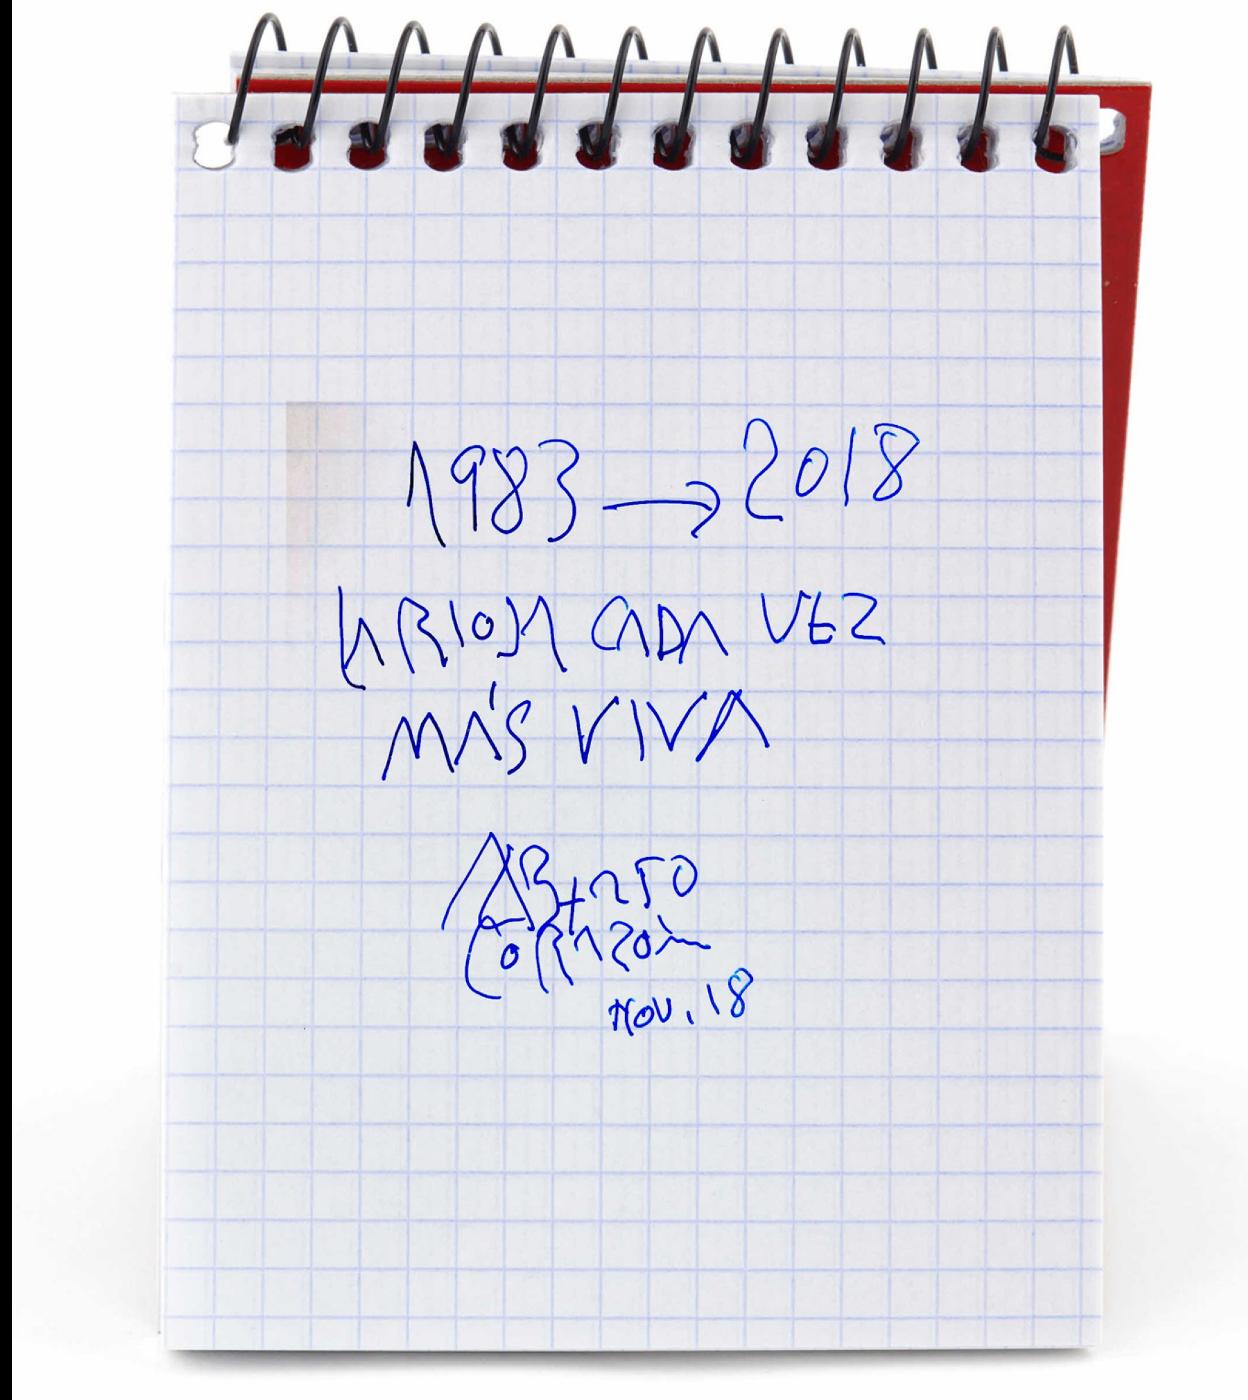 1983 → 2018
LA RIOJA CADA VEZ
MÁS VIVA
CORAZÓN
NOV. 18